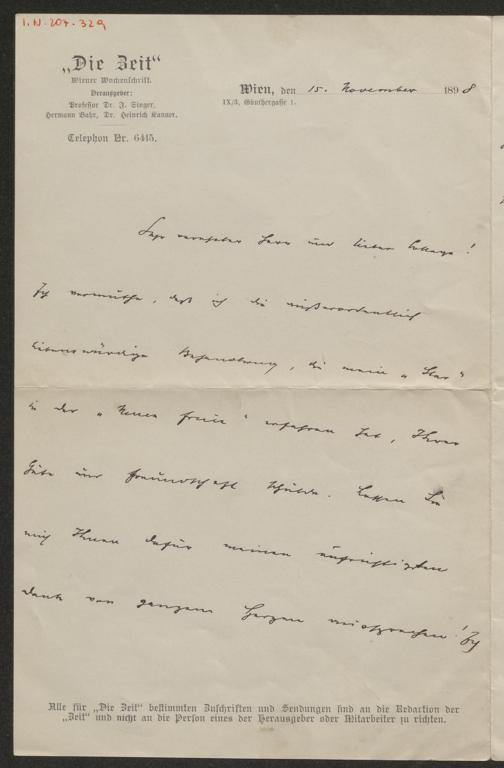 I.N. 207.329
„Die Zeit“
Wiener Wochenschrift.
Herausgeber:
Professor Dr. I. Singer,
Hermann Bahr, Dr. Heinrich Kanner.
Telephon Nr. 6415.
Wien, den 15. November 1898
IX/3, Günthergasse 1.
Sehr verehrter Herr und lieber College!
Ich vermuthe, daß ich die außerordentlich
liebenswürdige Behandlung, die mein „Star“
in der „Neuen freien“ erfahren hat, Ihrer
Güte und Freundschaft schulde. Lassen Sie
mich Ihnen dafür meinen aufrichtigsten
Dank von ganzem Herzen aussprechen! Ich
Alle für „Die Zeit“ bestimmten Zuschriften und Sendungen sind an die Redaction der
„Zeit“ und nicht an die Person eines der Herausgeber oder Mitarbeiter zu richten.